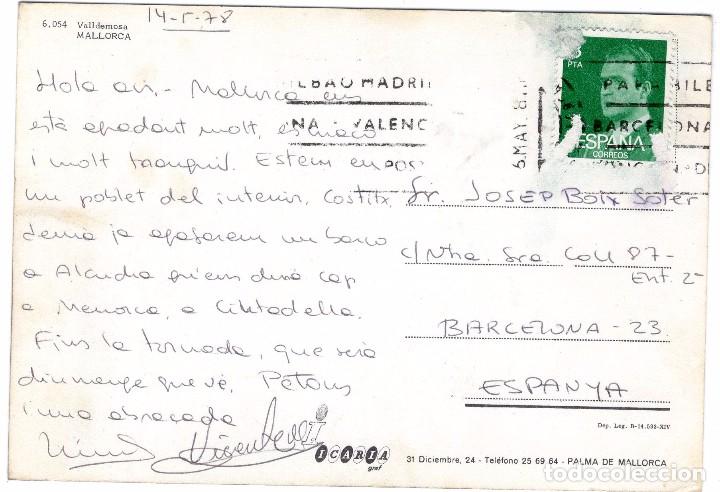 6.054 Valldemosa
MALLORCA
14-5-78
Hola avi,- Mallorca ens
està agradant molt, és maco
i molt tranquil. Estem en
un poblet del interior, Costitx,
demà ja agafarem un barco
a Alcudia que ens durà cap
a Menorca, a Ciutadella.
Fins la tornada, que serà
diumenge que ve, Petons
i una abraçada
BILBAO MADRI
NA - VALENC
MAY.
BILB
BARCELONA
3
PTA
ESPAÑA
CORREOS
Sr. JOSEP BOIX SOLER
c/ Ntra. Sra. Coll 87-
Ent. 2ª
BARCELONA - 23
ESPANYA
Dep. Leg. B-14.593-XIV
ICARIA
graf
31 Diciembre, 24 - Teléfono 25 69 64 - PALMA DE MALLORCA
todocoleccion